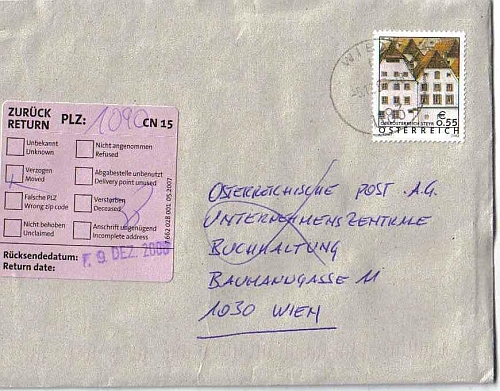 WIEN
€
0.55
OBERÖSTERREICH STEYR
ÖSTERREICH
ZURÜCK PLZ: 1090 CN 15
RETURN
Unbekannt
Unknown
Nicht angenommen
Refused
Verzogen
Moved
Abgabestelle unbenutzt
Delivery point unused
Falsche PLZ
Wrong zip code
Verstorben
Deceased
Nicht behoben
Unclaimed
Anschrift ungenügend
Incomplete address
Rücksendedatum: F. 9. DEZ. 2008
Return date:
7662 028 001 05.2007
ÖSTERREICHISCHE POST A.G.
UNTERNEHMENSZENTRALE
BUCHHALTUNG
BAUMANNGASSE 11
1030 WIEN